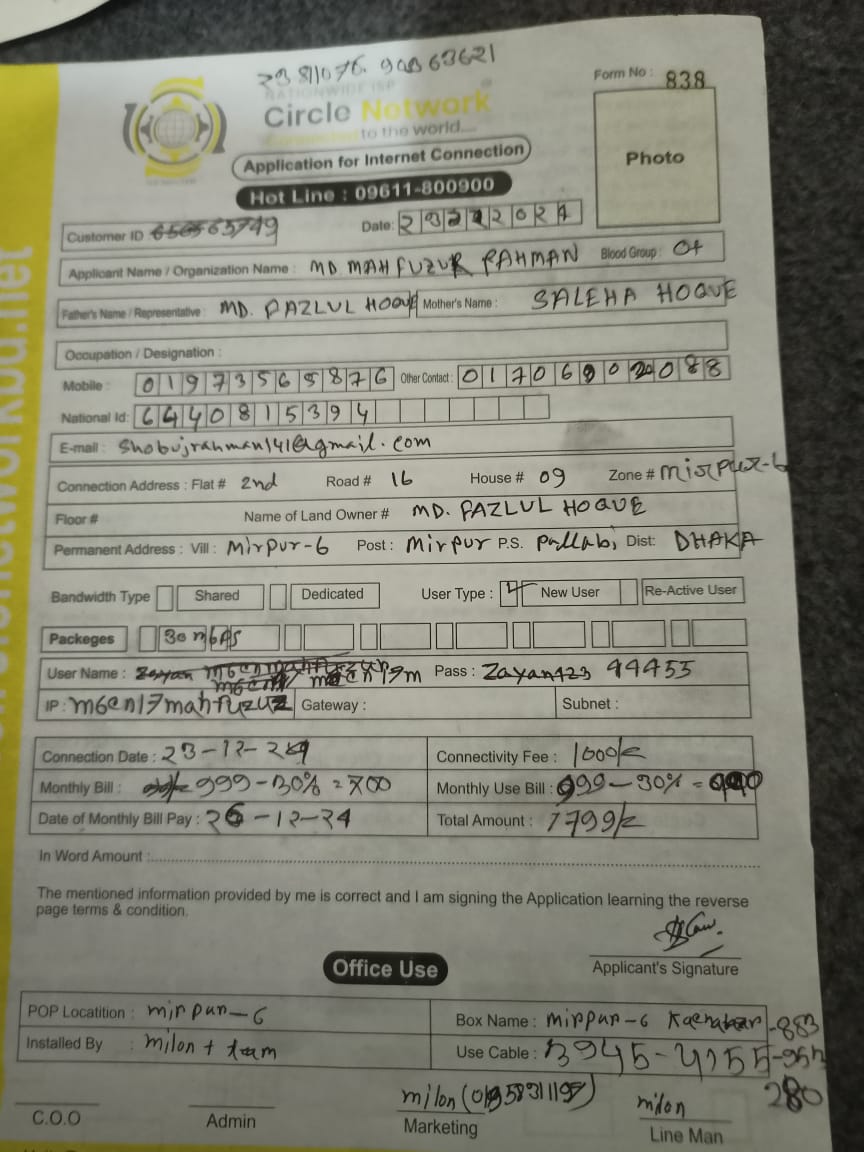 23811076. 90063621
Form No : 838
NATIONWIDE ISP
Circle Network
Connected to the world....
Photo
Application for Internet Connection
Hot Line : 09611-800900
Customer ID
Date: 23122024
Applicant Name / Organization Name : MD MAHFUZUR RAHMAN Blood Group : O+
Father's Name / Representative : MD. FAZLUL HOQUE Mother's Name : SALEHA HOQUE
Occupation / Designation :
Mobile : 01973565876 Other Contact : 017069
National Id: 6440815394
E-mail : Shobujrahman141@gmail.com
Connection Address : Flat # 2nd Road # 16 House # 09 Zone # Mirpur-6
Floor # Name of Land Owner # MD. FAZLUL HOQUE
Permanent Address : Vill : Mirpur-6 Post : Mirpur P.S. Pallabi Dist: DHAKA
Bandwidth Type Shared Dedicated User Type : New User Re-Active User
Packeges 30 mbps
User Name : Pass : Zayan123 44455
IP : Gateway : Subnet :
Connection Date : 23-12-24 Connectivity Fee : 1000/=
Monthly Bill : 999-30% = 700 Monthly Use Bill : 999-30% =
Date of Monthly Bill Pay : 26-12-24 Total Amount : 1799/=
In Word Amount :
The mentioned information provided by me is correct and I am signing the Application learning the reverse
page terms & condition.
Applicant's Signature
Office Use
POP Locatition : mirpur-6 Box Name : mirpur-6 -883
Installed By : milon + team Use Cable : 3945-4155
280
milon milon
C.O.O Admin Marketing Line Man